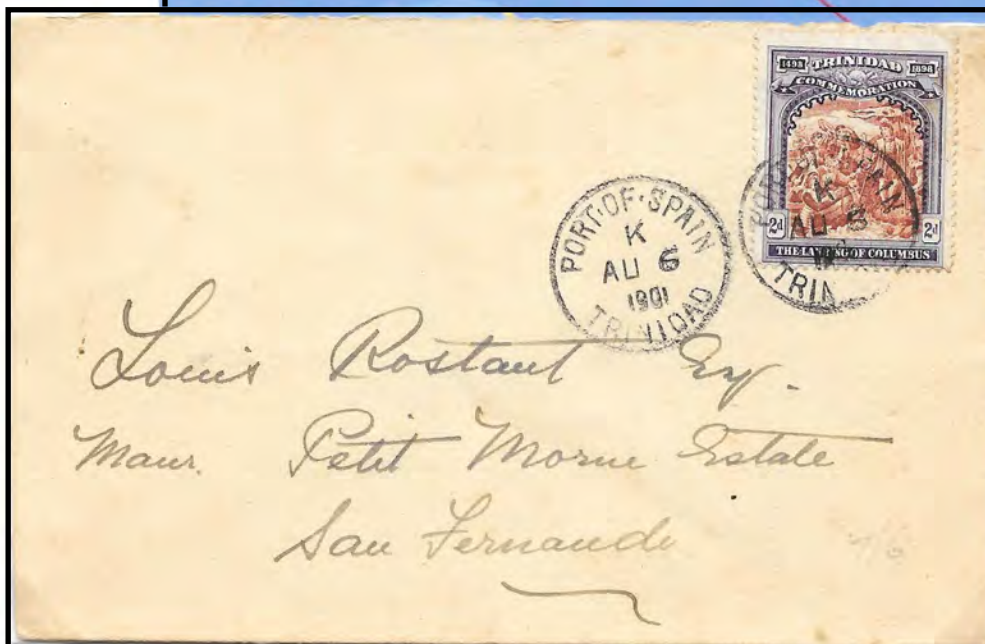 1498 TRINIDAD 1898
COMMEMORATION
2d 2d
THE LANDING OF COLUMBUS
PORT·OF·SPAIN
K
AU 6
1901
TRINIDAD
K
AU 6
TRIN
Louis Rostant Esq.
Petit Morne Estate
San Fernando